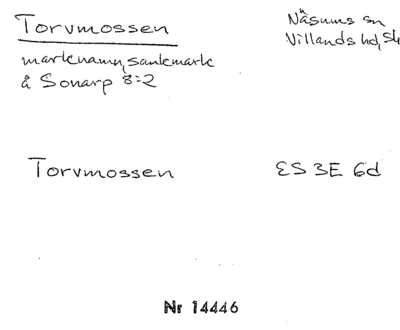 Torvmossen
Näsums sn
Villands hd, Sk
marknamn, sankmark
å Sonarp 8:2
Torvmossen
ES 3E 6d
Nr 14446